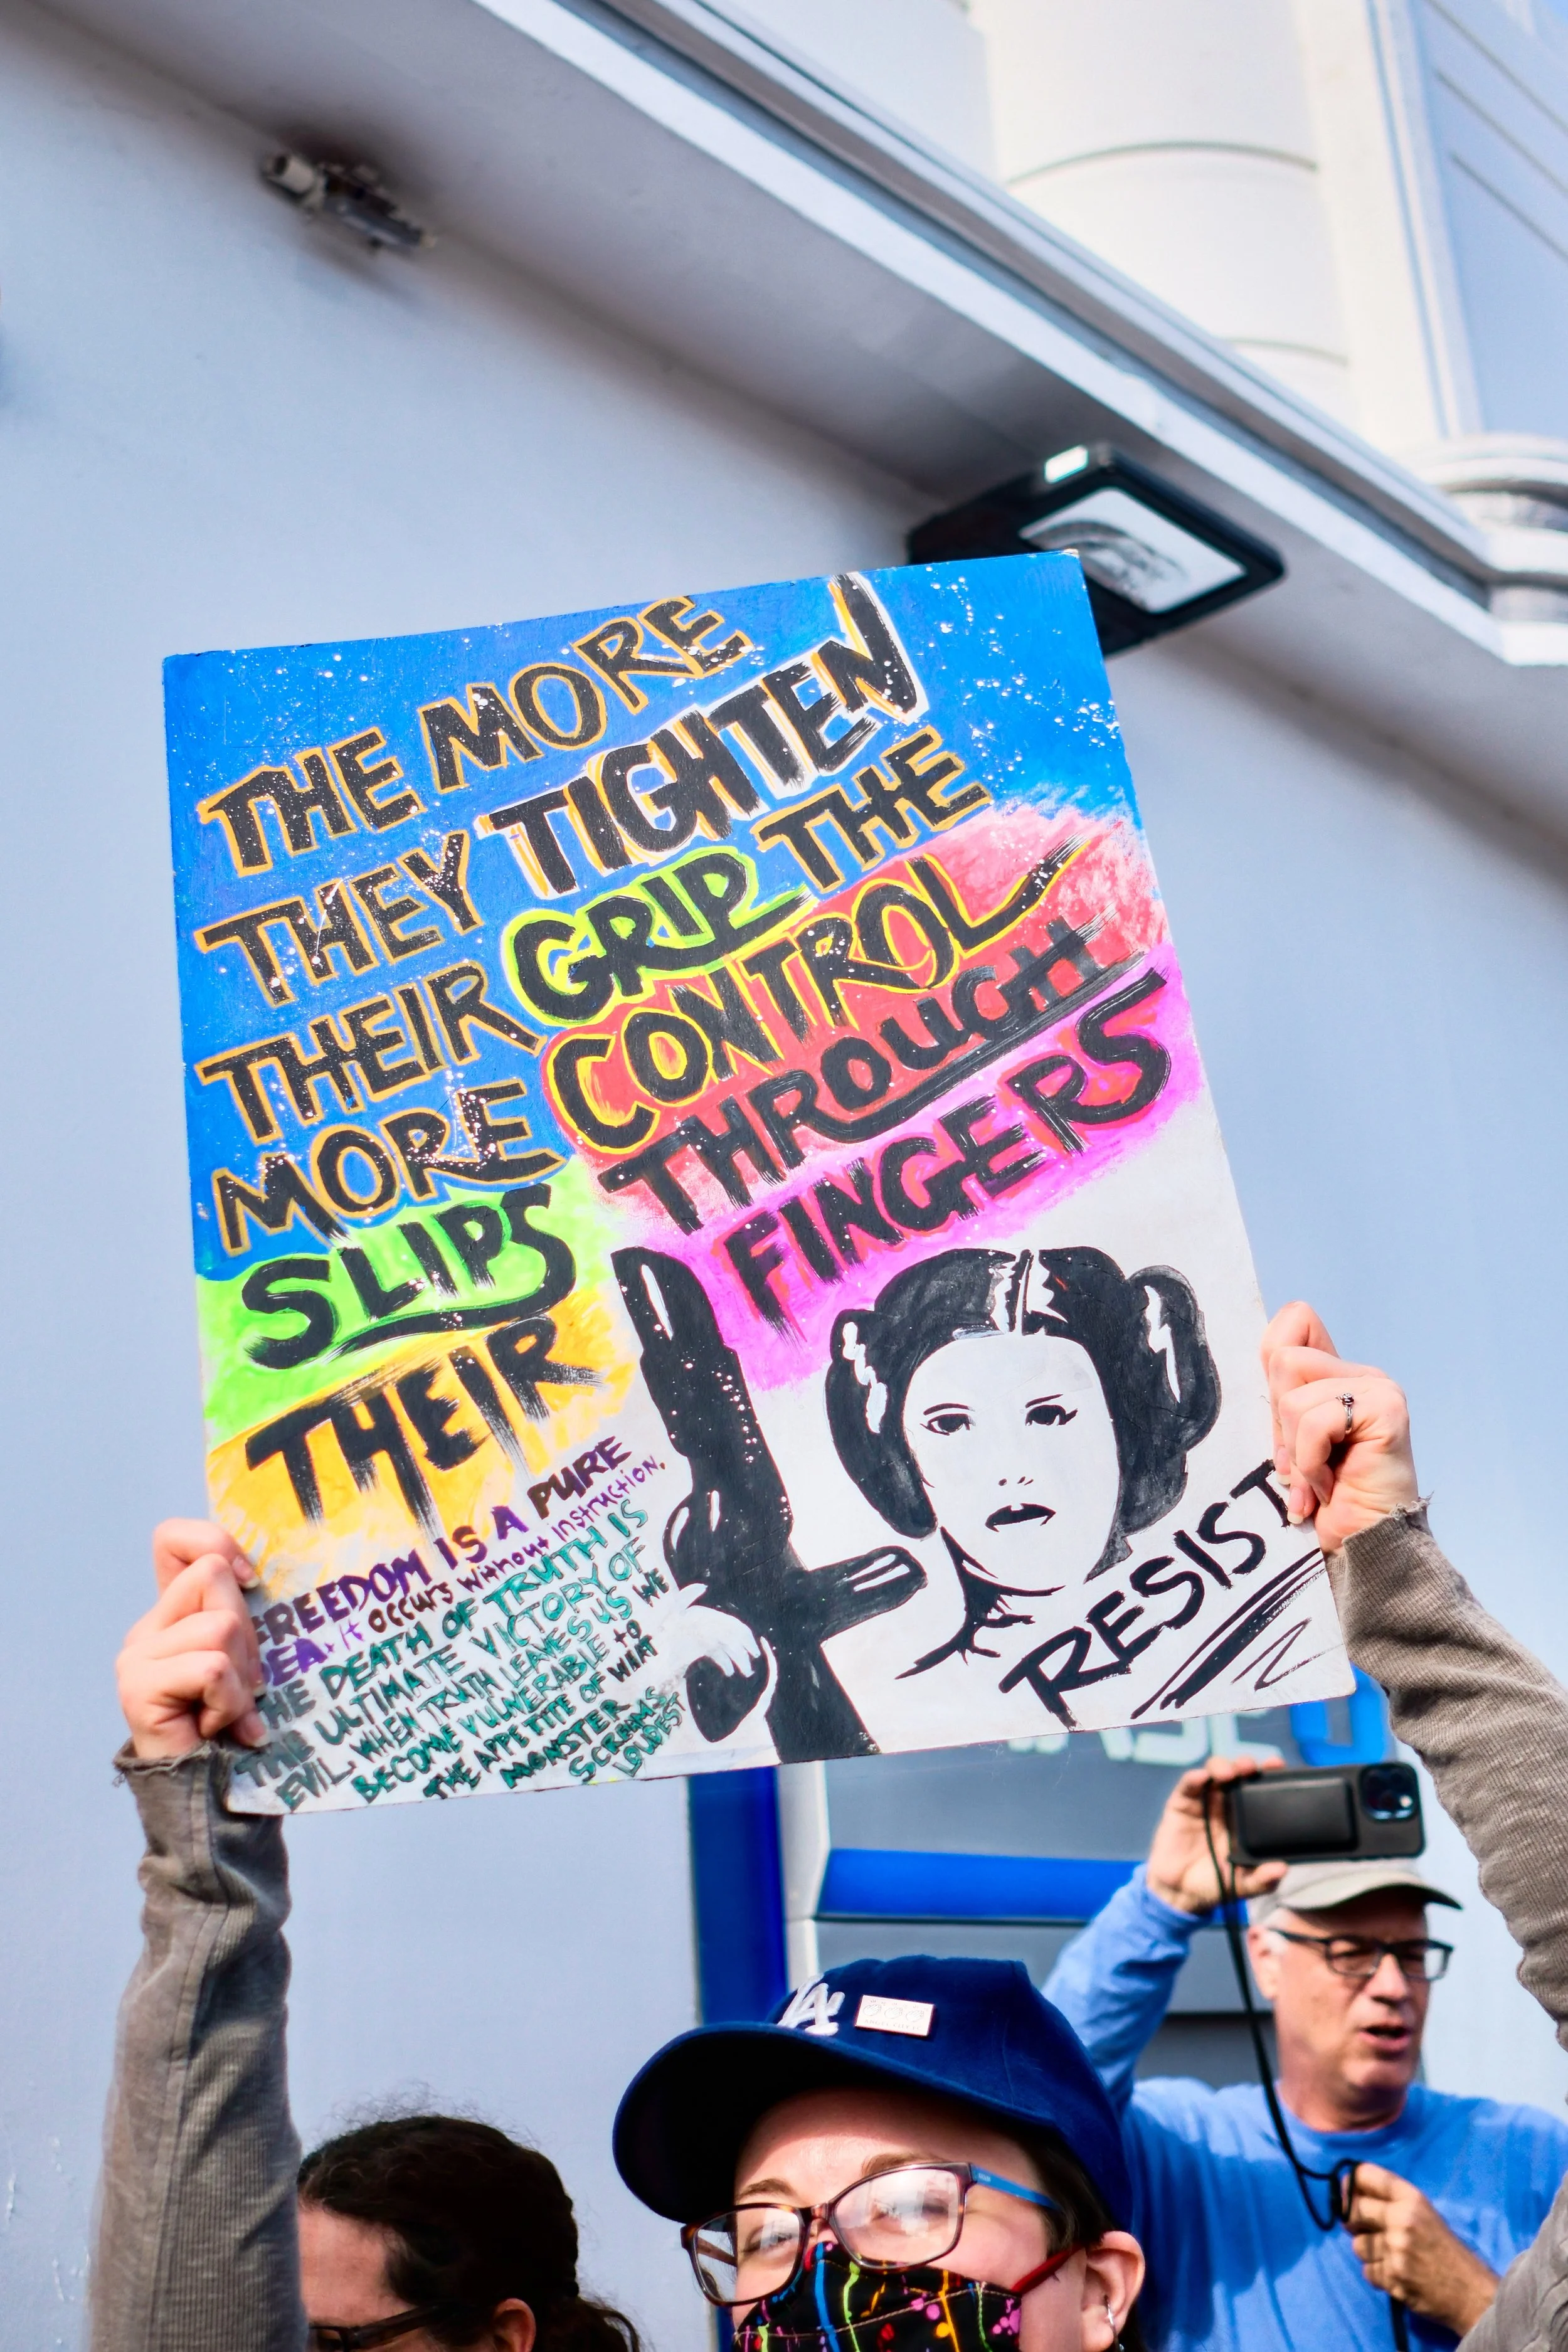 THE MORE
THEY TIGHTEN
THEIR GRIP THE
MORE CONTROL
SLIPS THROUGH
THEIR FINGERS
FREEDOM IS A PURE
IDEA. It occurs without instruction.
THE DEATH OF TRUTH IS
THE ULTIMATE VICTORY OF
EVIL. WHEN TRUTH LEAVES US WE
BECOME VULNERABLE to
THE APPETITE OF WHAT
MONSTER
SCREAMS
LOUDEST
RESIST
LA